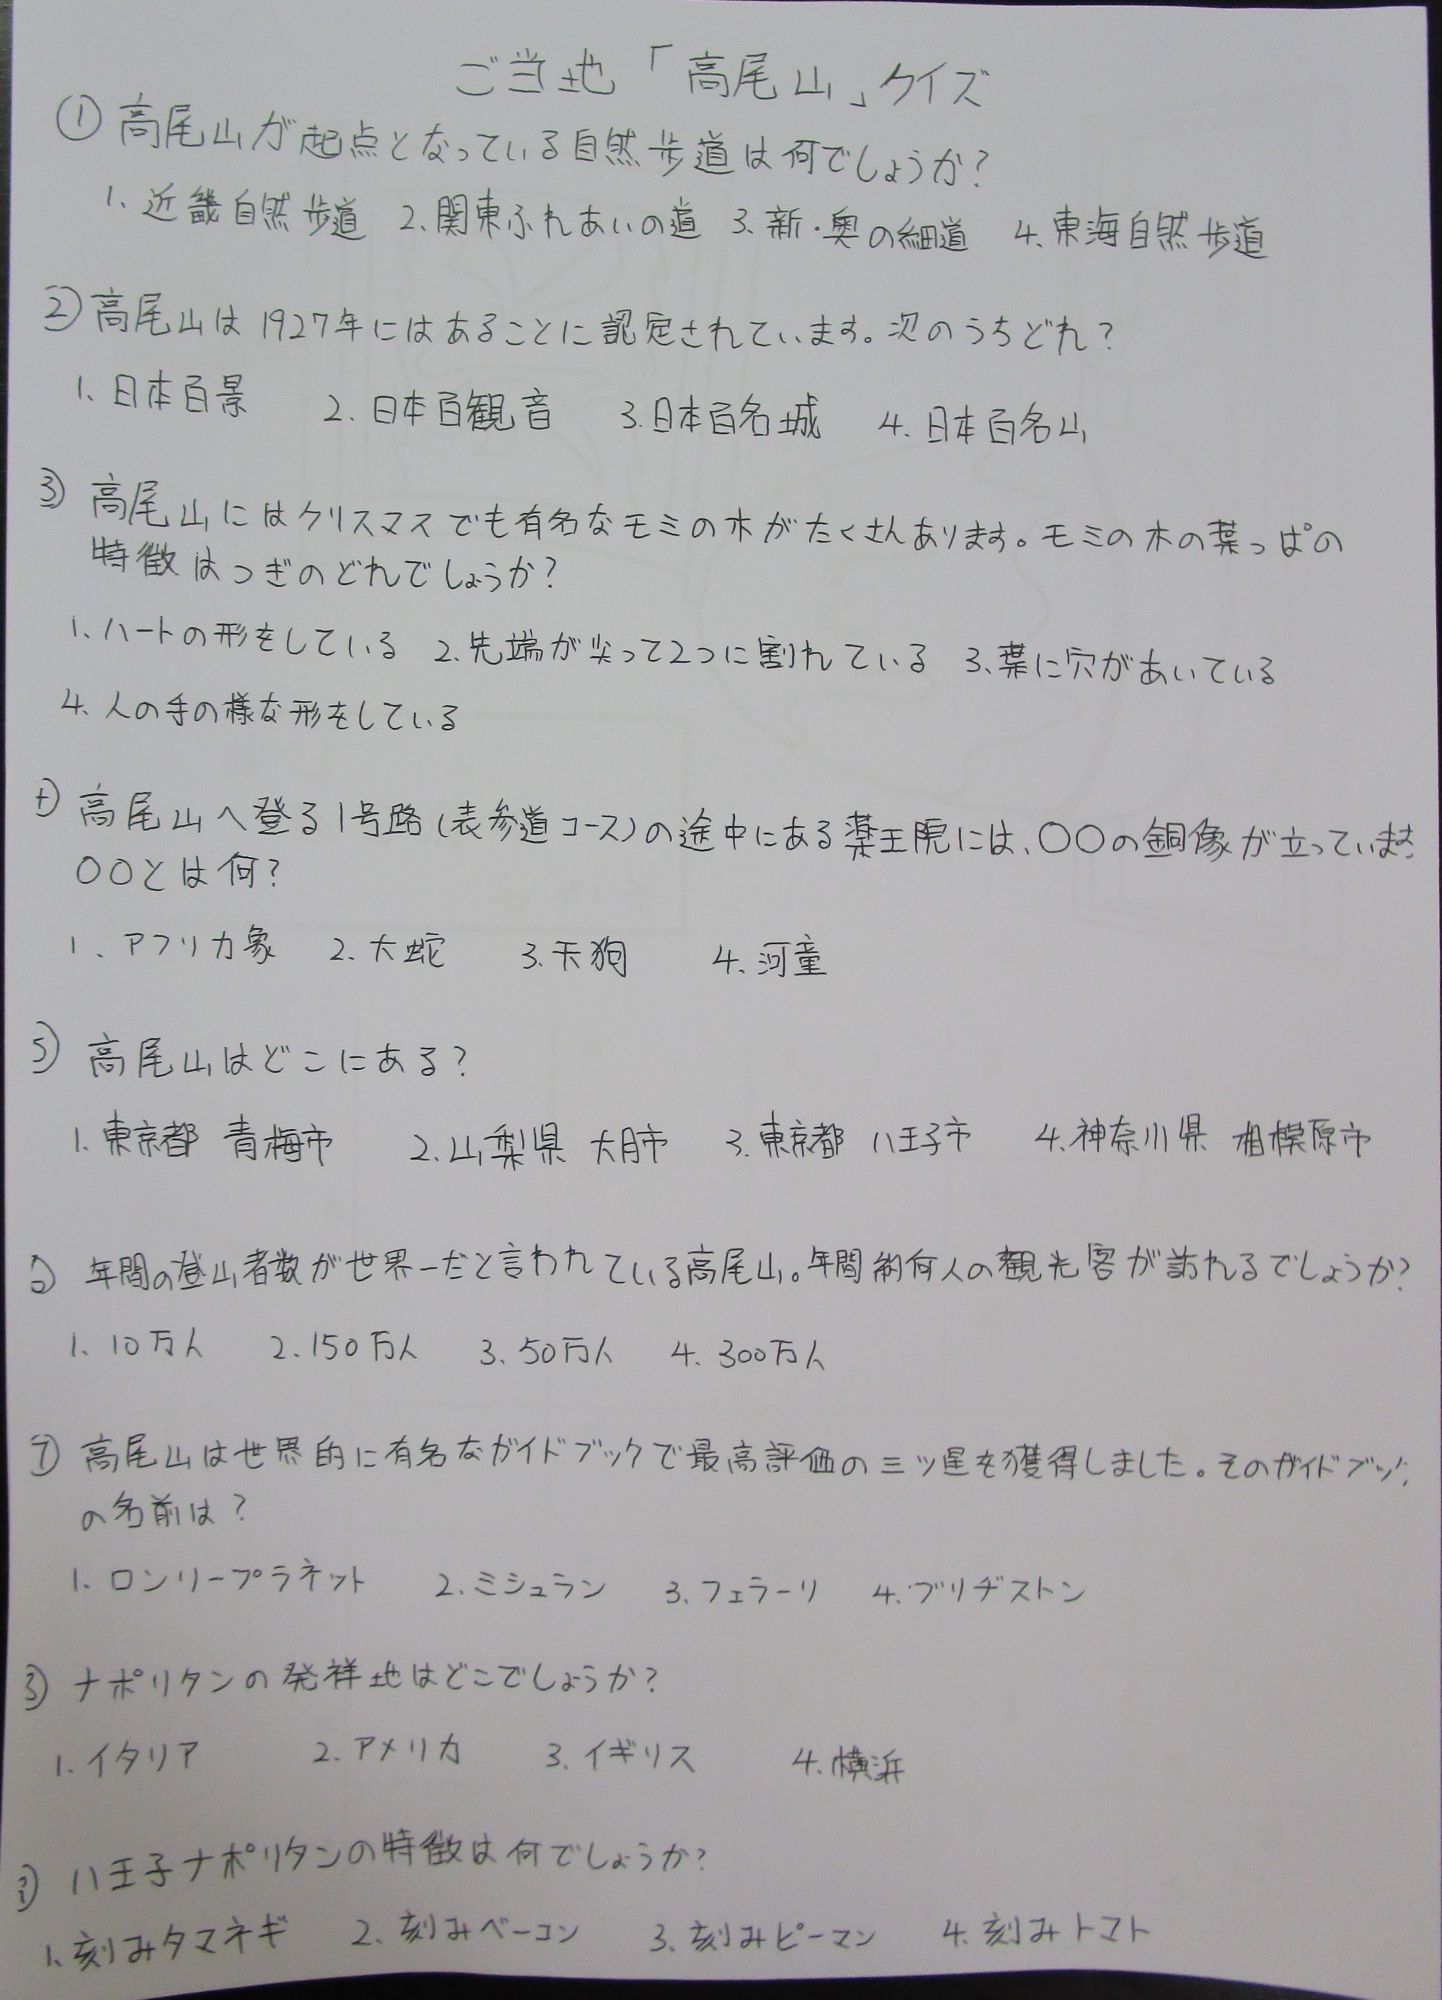 ご当地「高尾山」クイズ
① 高尾山が起点となっている自然歩道は何でしょうか?
1、近畿自然歩道 2、関東ふれあいの道 3、新・奥の細道 4、東海自然歩道
② 高尾山は1927年にはあることに認定されています。次のうちどれ?
1、日本百景 2、日本百観音 3、日本百名城 4、日本百名山
③ 高尾山にはクリスマスでも有名なモミの木がたくさんあります。モミの木の葉っぱの
特徴はつぎのどれでしょうか?
1、ハートの形をしている 2、先端が尖って2つに割れている 3、葉に穴があいている
4、人の手の様な形をしている
④ 高尾山へ登る1号路(表参道コース)の途中にある薬王院には、〇〇の銅像が立っています
〇〇とは何?
1、アフリカ象 2、大蛇 3、天狗 4、河童
⑤ 高尾山はどこにある?
1、東京都 青梅市 2、山梨県 大月市 3、東京都 八王子市 4、神奈川県 相模原市
⑥ 年間の登山者数が世界一だと言われている高尾山。年間約何人の観光客が訪れるでしょうか?
1、10万人 2、150万人 3、50万人 4、300万人
⑦ 高尾山は世界的に有名なガイドブックで最高評価の三ツ星を獲得しました。そのガイドブック
の名前は?
1、ロンリープラネット 2、ミシュラン 3、フェラーリ 4、ブリヂストン
⑧ ナポリタンの発祥地はどこでしょうか?
1、イタリア 2、アメリカ 3、イギリス 4、横浜
⑨ 八王子ナポリタンの特徴は何でしょうか?
1、刻みタマネギ 2、刻みベーコン 3、刻みピーマン 4、刻みトマト